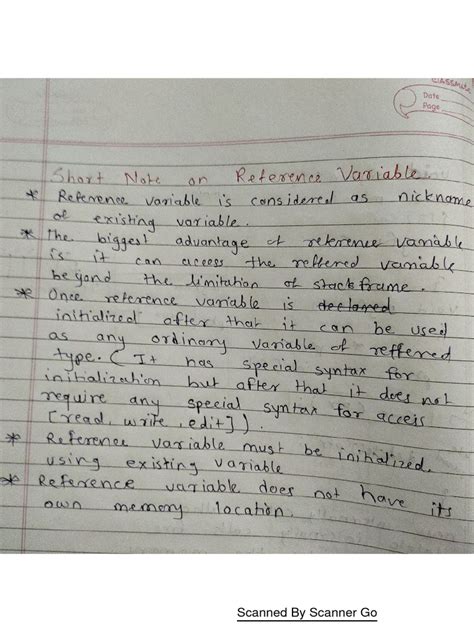 CLASSMATE
Date
Page
Short Note on Reference Variable.
* Reference variable is considered as nickname
of existing variable.
* The biggest advantage of reference variable
is it can access the reffered variable
beyond the limitation of stack frame.
* Once reference variable is declared
initialized after that it can be used
as any ordinary variable of reffered
type. ( It has special syntax for
initialization but after that it does not
require any special syntax for access
[read, write, edit] ).
* Reference variable must be initialized.
using existing variable
* Reference variable does not have its
own memory location.
Scanned By Scanner Go